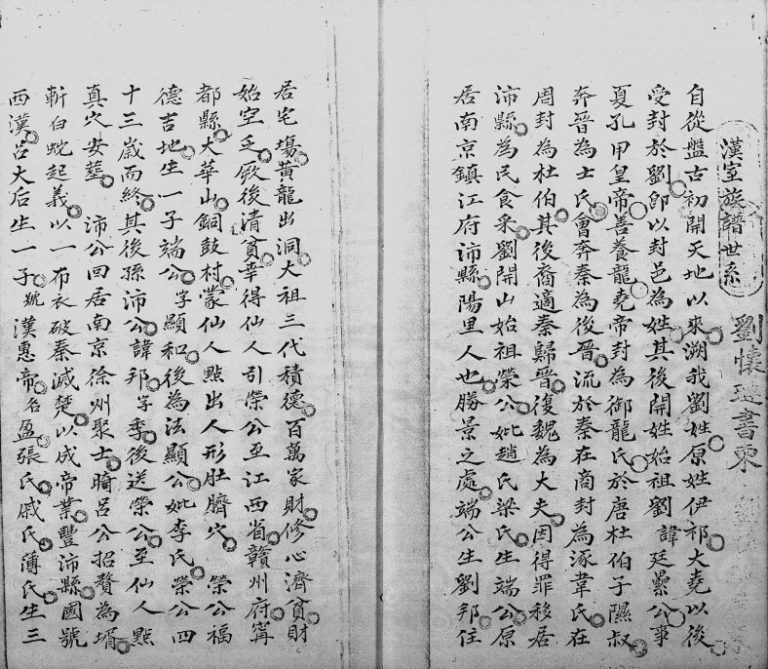 漢室族譜世系
劉懷璉書柬
自從盤古初開天地以來溯我劉姓原姓伊祁大堯以後
受封於劉卽以封邑為姓其後開姓始祖劉諱廷纍公事
夏孔甲皇帝善養龍堯帝封為御龍氏於唐杜伯子隰叔
奔晉為士氏會奔秦為後晉流於秦在商封為豕韋氏在
周封為杜伯其後裔適秦歸晉復魏為大夫因得罪移居
沛縣為民食采劉開山始祖榮公妣趙氏梁氏生端公原
居南京鎮江府沛縣陽里人也勝景之處端公生劉邦住
居宅塲黃龍出洞大祖三代積德百萬家財修心濟貧財
始空乏厥後清貧幸得仙人引榮公至江西省贛州府寗
都縣大華山銅鼓村蒙仙人㸃出人形肚臍穴榮公福
德吉地生一子端公字顯和後為法顯公妣李氏榮公四
十三歲而終其後孫沛公諱邦字季後送榮公至仙人㸃
真穴安塟沛公回居南京徐州聚士時呂公招贅為壻
斬白蛇起義以一布衣破秦滅楚以成帝業豐沛縣國號
西漢呂大后生一子號漢惠帝名盈張氏戚氏薄氏生三